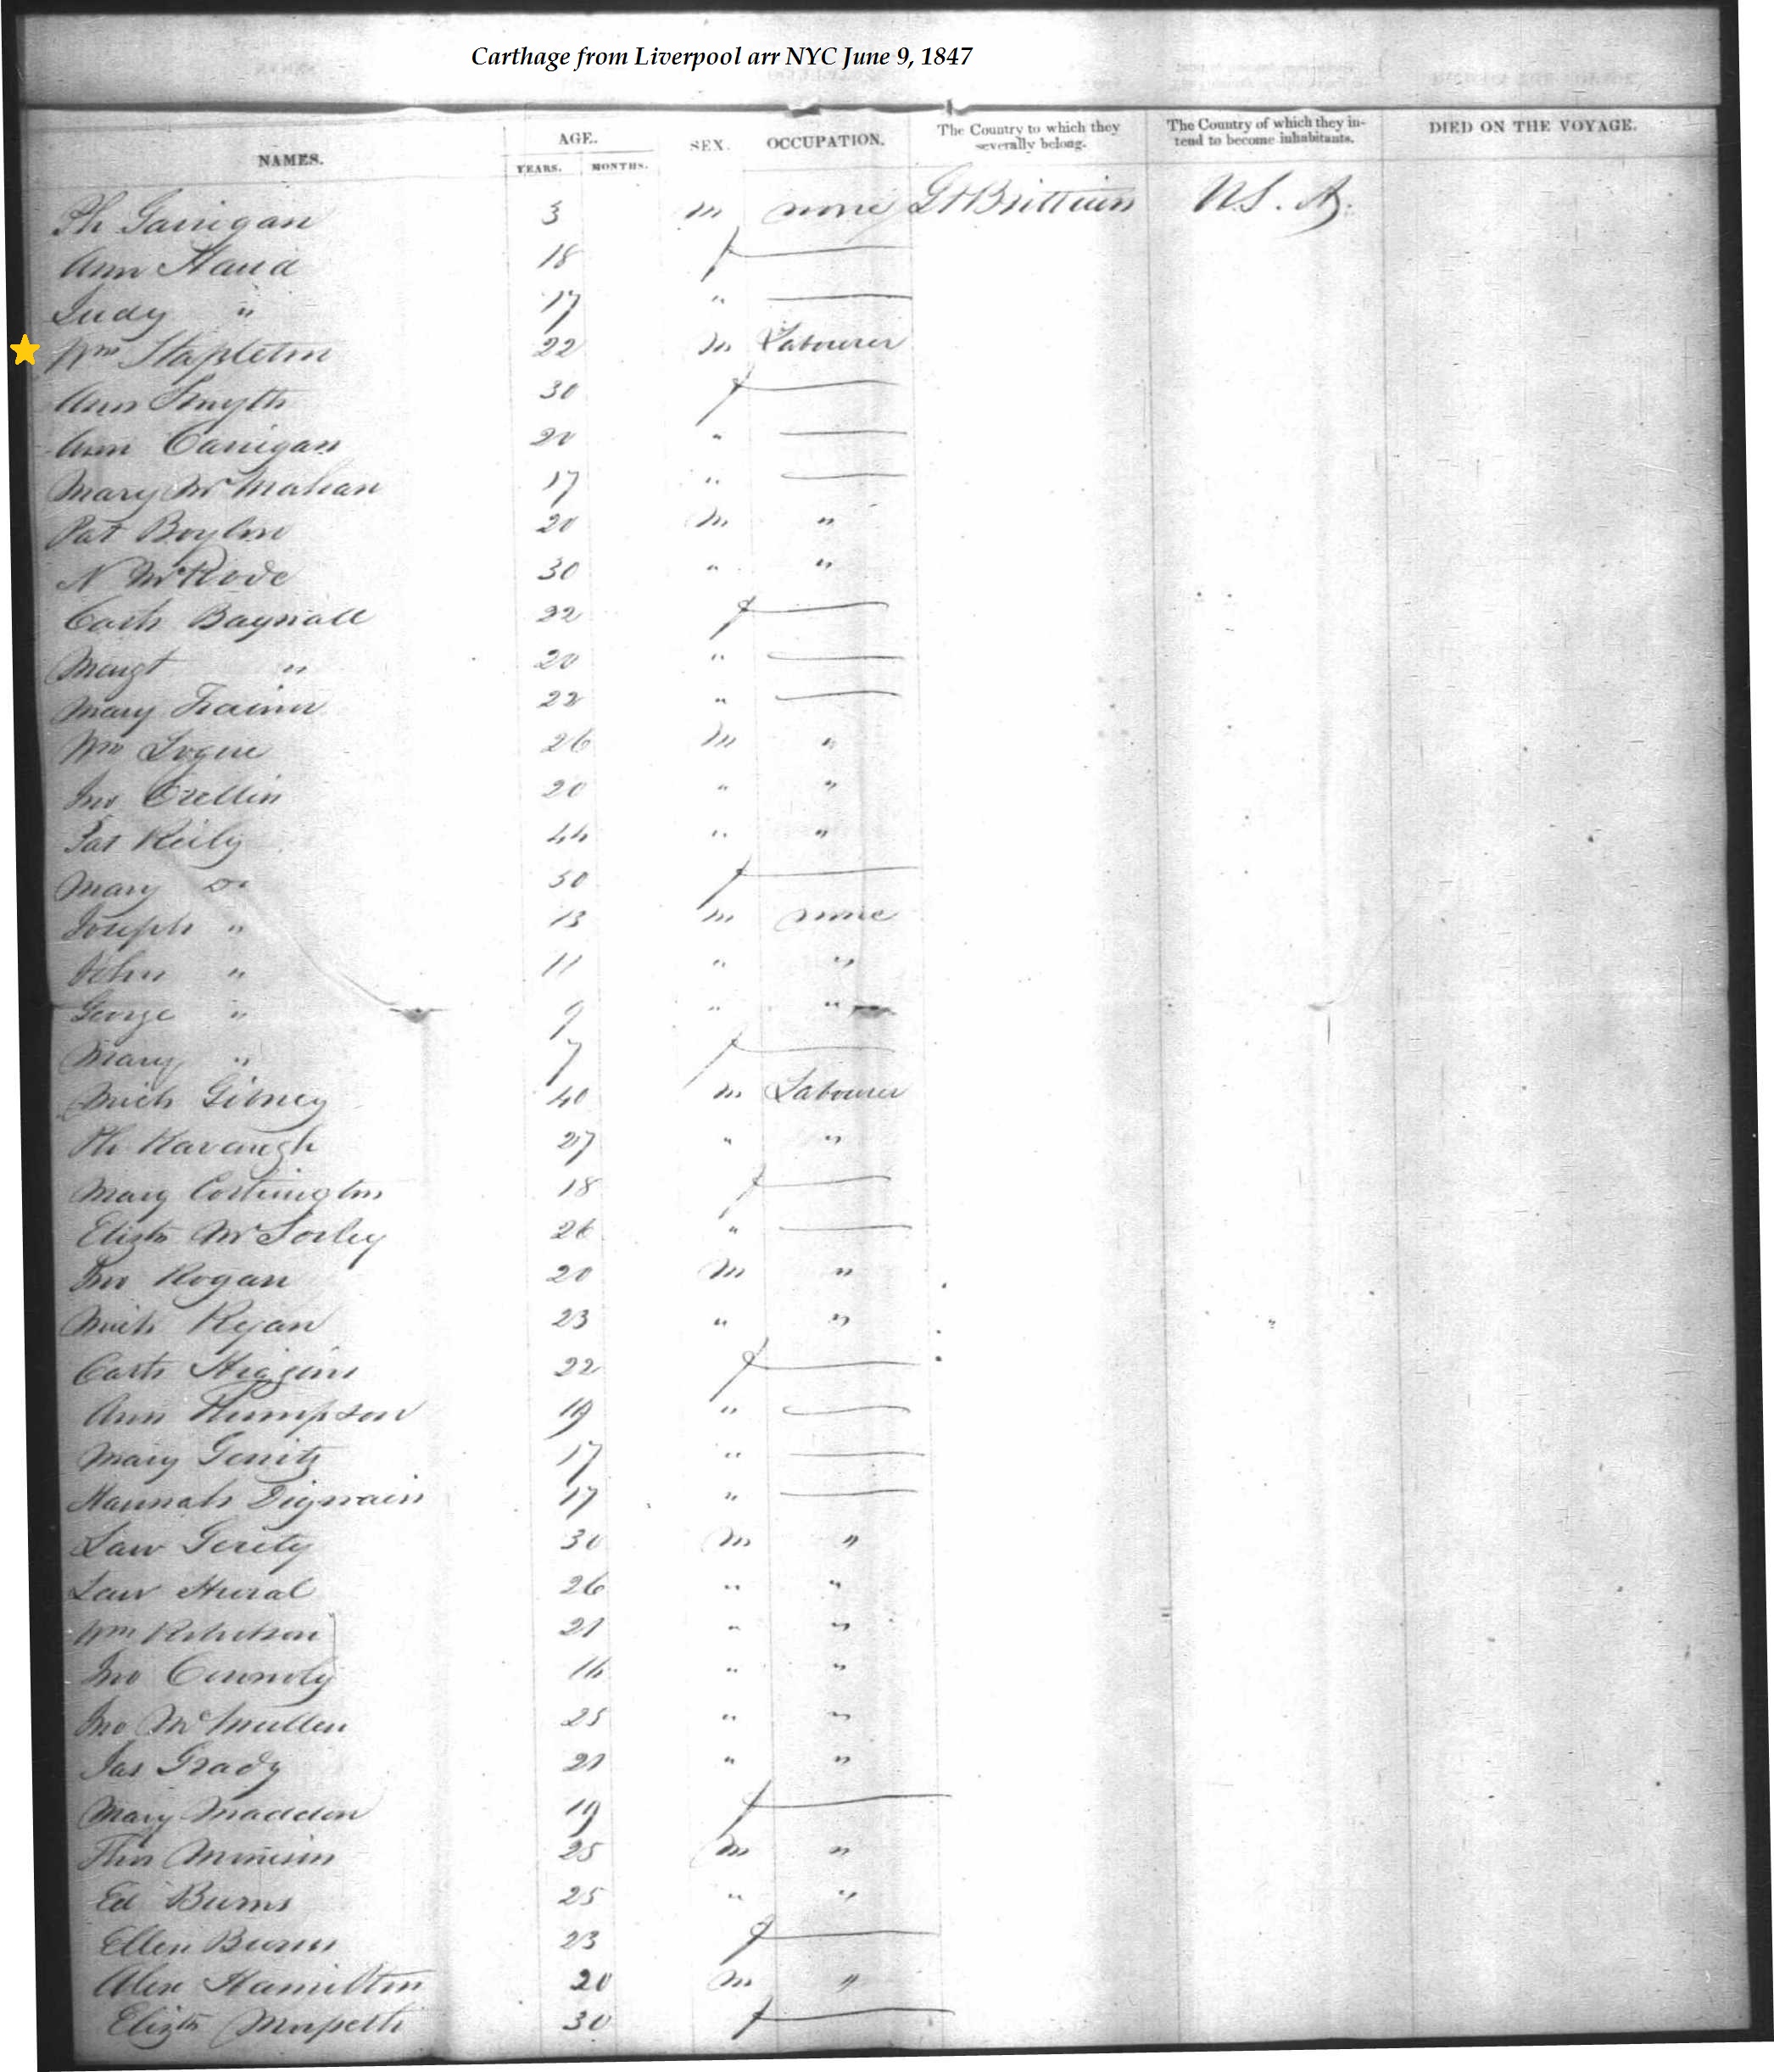 Carthage from Liverpool arr NYC June 9, 1847
NAMES. AGE. YEARS. MONTHS. SEX. OCCUPATION. The Country to which they severally belong. The Country of which they intend to become inhabitants. DIED ON THE VOYAGE.
Ph Garrigan 3 m none Gt Brittian U.S.A.
Ann 18 f —
Judy " 17 " —
Wm Stapleton 22 m Labourer
Ann Smyth 30 f —
Ann Carrigan 20 " —
Mary McMahan 17 " —
Pat Boylan 20 m "
N 30 " "
Cath Bagnall 22 f —
Margt " 20 " —
Mary Trainer 22 " —
Wm Logue 26 m "
Jno Crellin 20 " "
Pat Reily 44 " "
Mary Do 50 f —
Joseph " 13 m none
John " 11 " "
George " 9 " "
Mary " 7 f —
Mich Gibney 40 m Labourer
Ph Kavanagh 27 " "
Mary 18 f —
Elizth McSorley 26 " —
Jno Rogan 20 m "
Mich Ryan 23 " "
Cath Higgins 22 f —
Ann Thompson 19 " —
Mary 17 " —
Hannah Dignain 17 " —
Law Gerity 30 m "
Law 26 " "
Wm Robertson 21 " "
Jno Connoly 16 " "
Jno McMullen 25 " "
Jas Grady 21 " "
Mary Madden 19 f —
Thos 25 m "
Ed Burns 25 " "
Ellen Burns 23 f —
Alex Hamilton 20 m "
Elizth Morpeth 30 f —